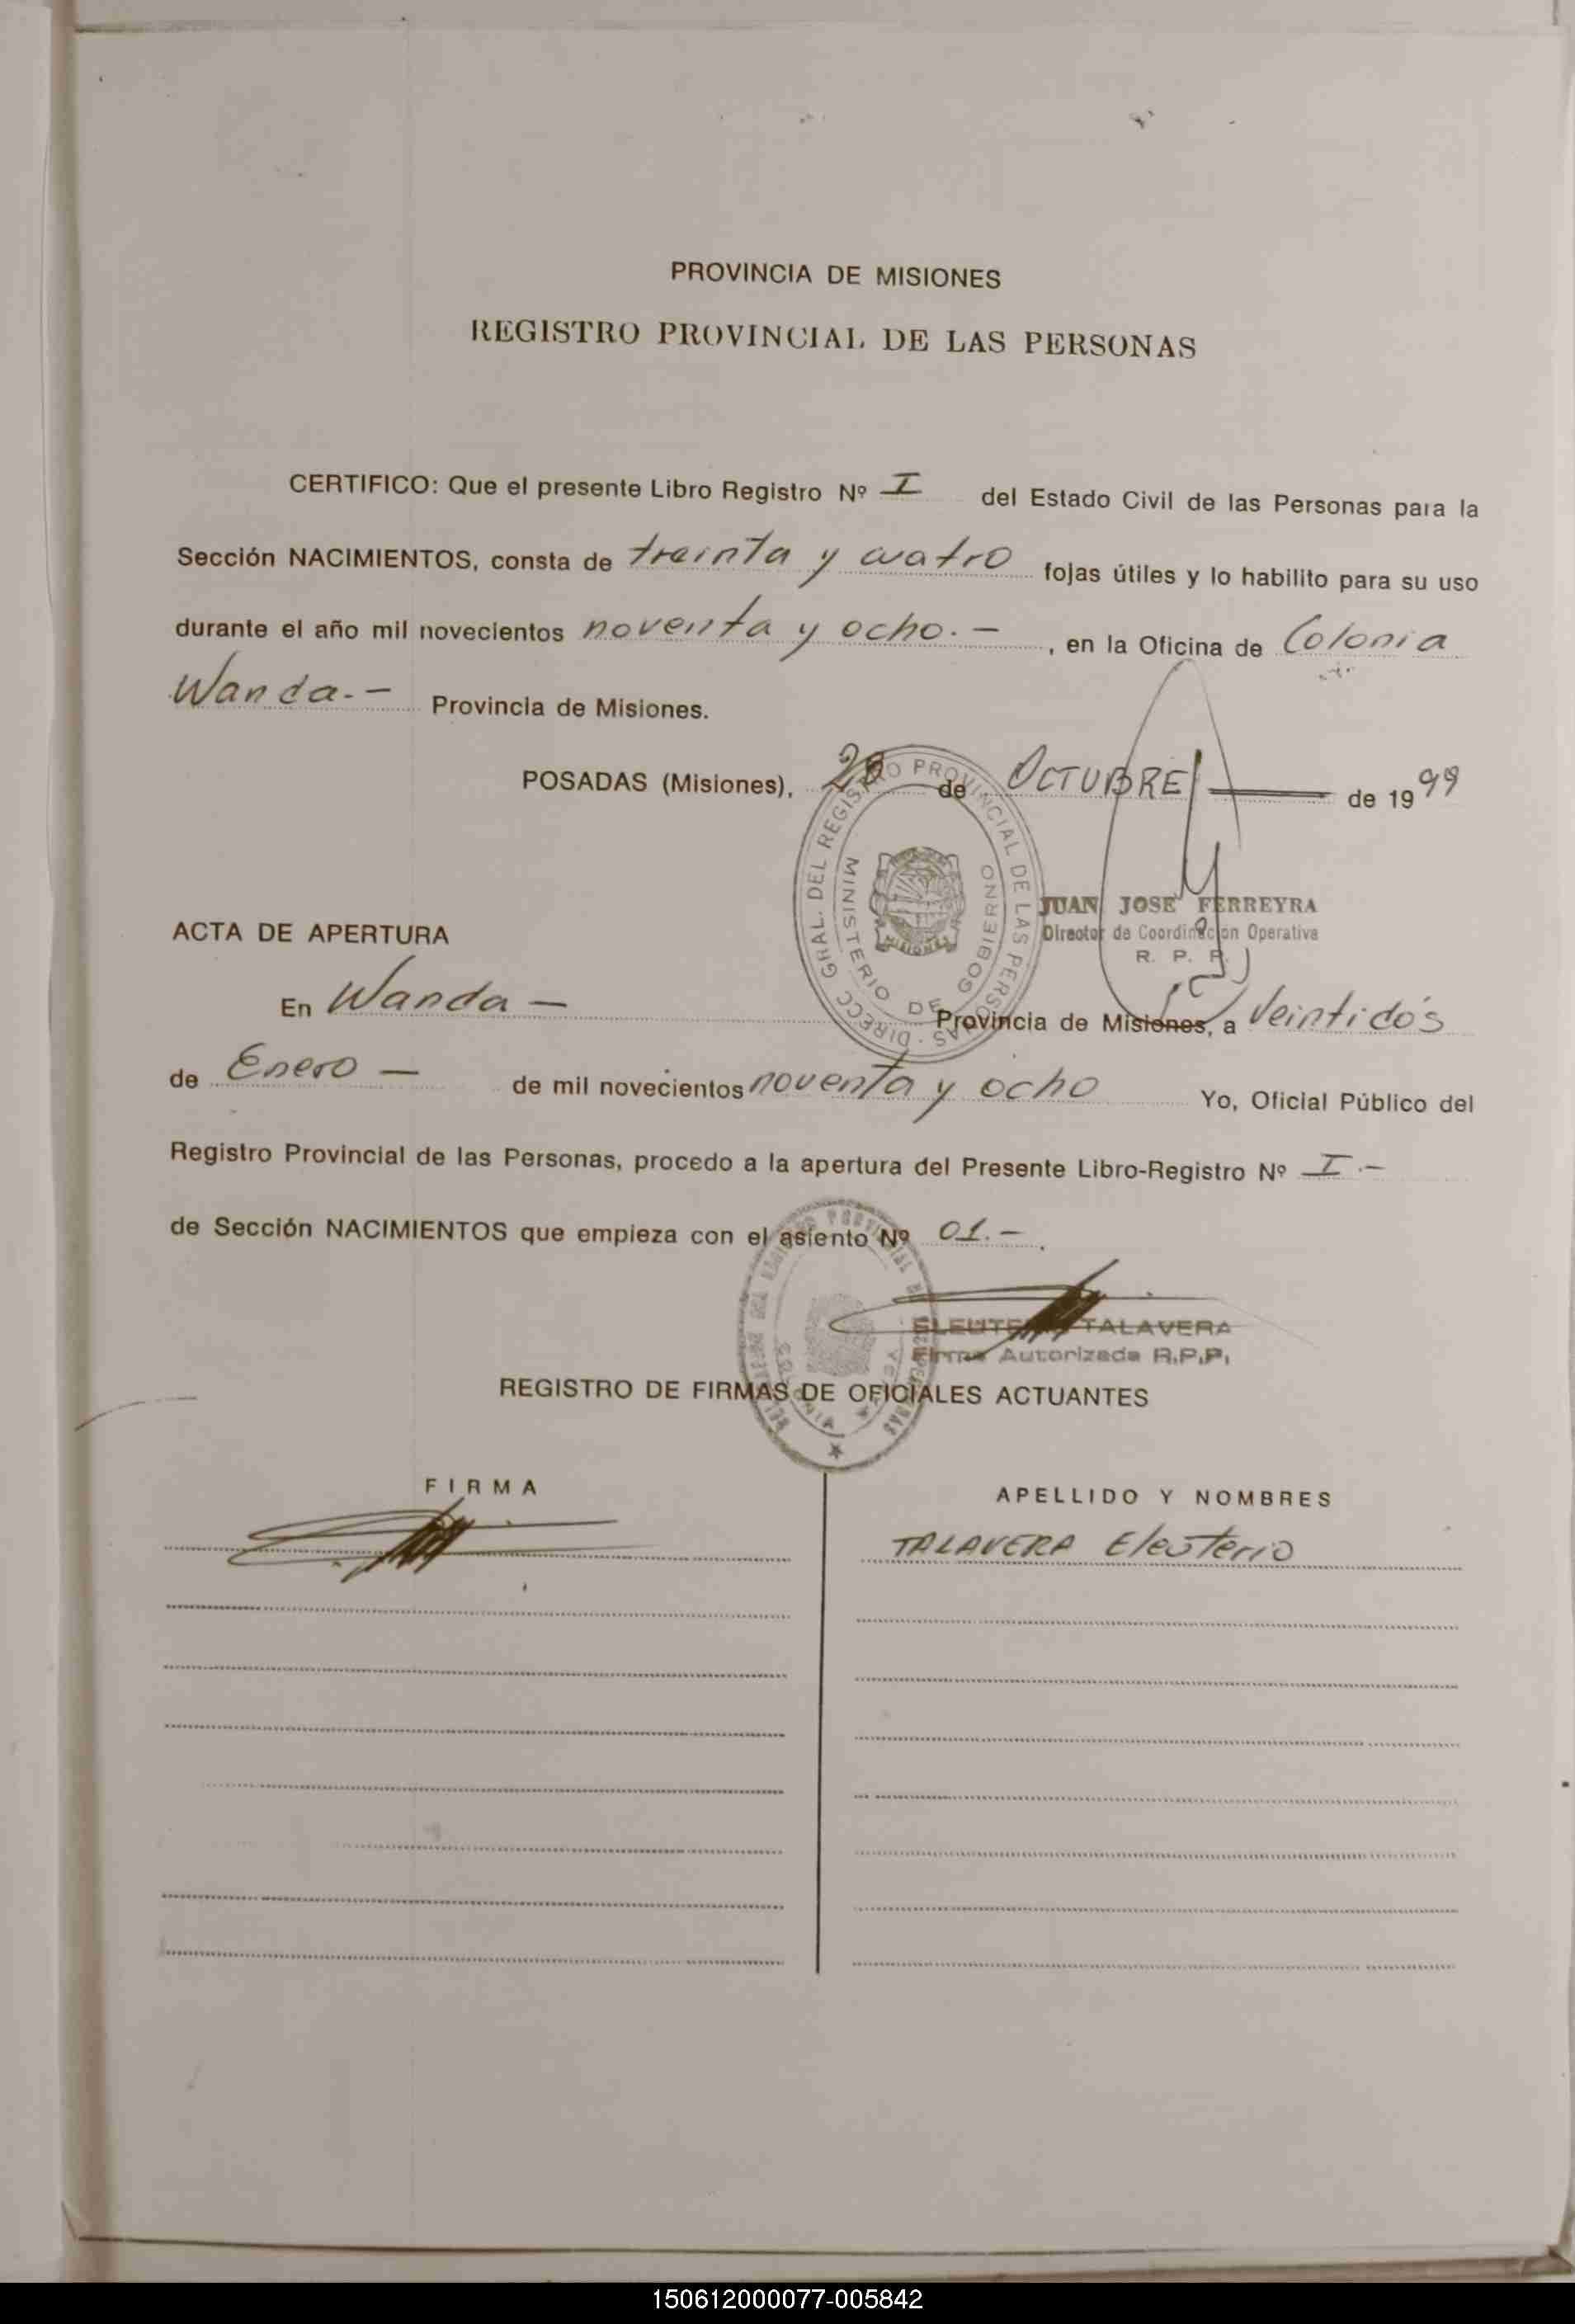 PROVINCIA DE MISIONES
REGISTRO PROVINCIAL DE LAS PERSONAS
CERTIFICO: Que el presente Libro Registro Nº I del Estado Civil de las Personas para la
Sección NACIMIENTOS, consta de treinta y cuatro fojas útiles y lo habilito para su uso
durante el año mil novecientos noventa y ocho.- , en la Oficina de Colonia
Wanda.- Provincia de Misiones.
POSADAS (Misiones), de OCTUBRE de 1999
DIRECC. GRAL. DEL REGISTRO PROVINCIAL DE LAS PERSONAS
MINISTERIO DE GOBIERNO
MISIONES
JUAN JOSE FERREYRA
Director de Coordinación Operativa
R. P. P.
ACTA DE APERTURA
En Wanda - Provincia de Misiones, a Veintidós
de Enero - de mil novecientos noventa y ocho Yo, Oficial Público del
Registro Provincial de las Personas, procedo a la apertura del Presente Libro-Registro Nº I.-
de Sección NACIMIENTOS que empieza con el asiento Nº 01.- .
ELEUTERIO TALAVERA
Firma Autorizada R.P.P.
REGISTRO DE FIRMAS DE OFICIALES ACTUANTES
FIRMA
APELLIDO Y NOMBRES
TALAVERA Eleuterio
150612000077-005842